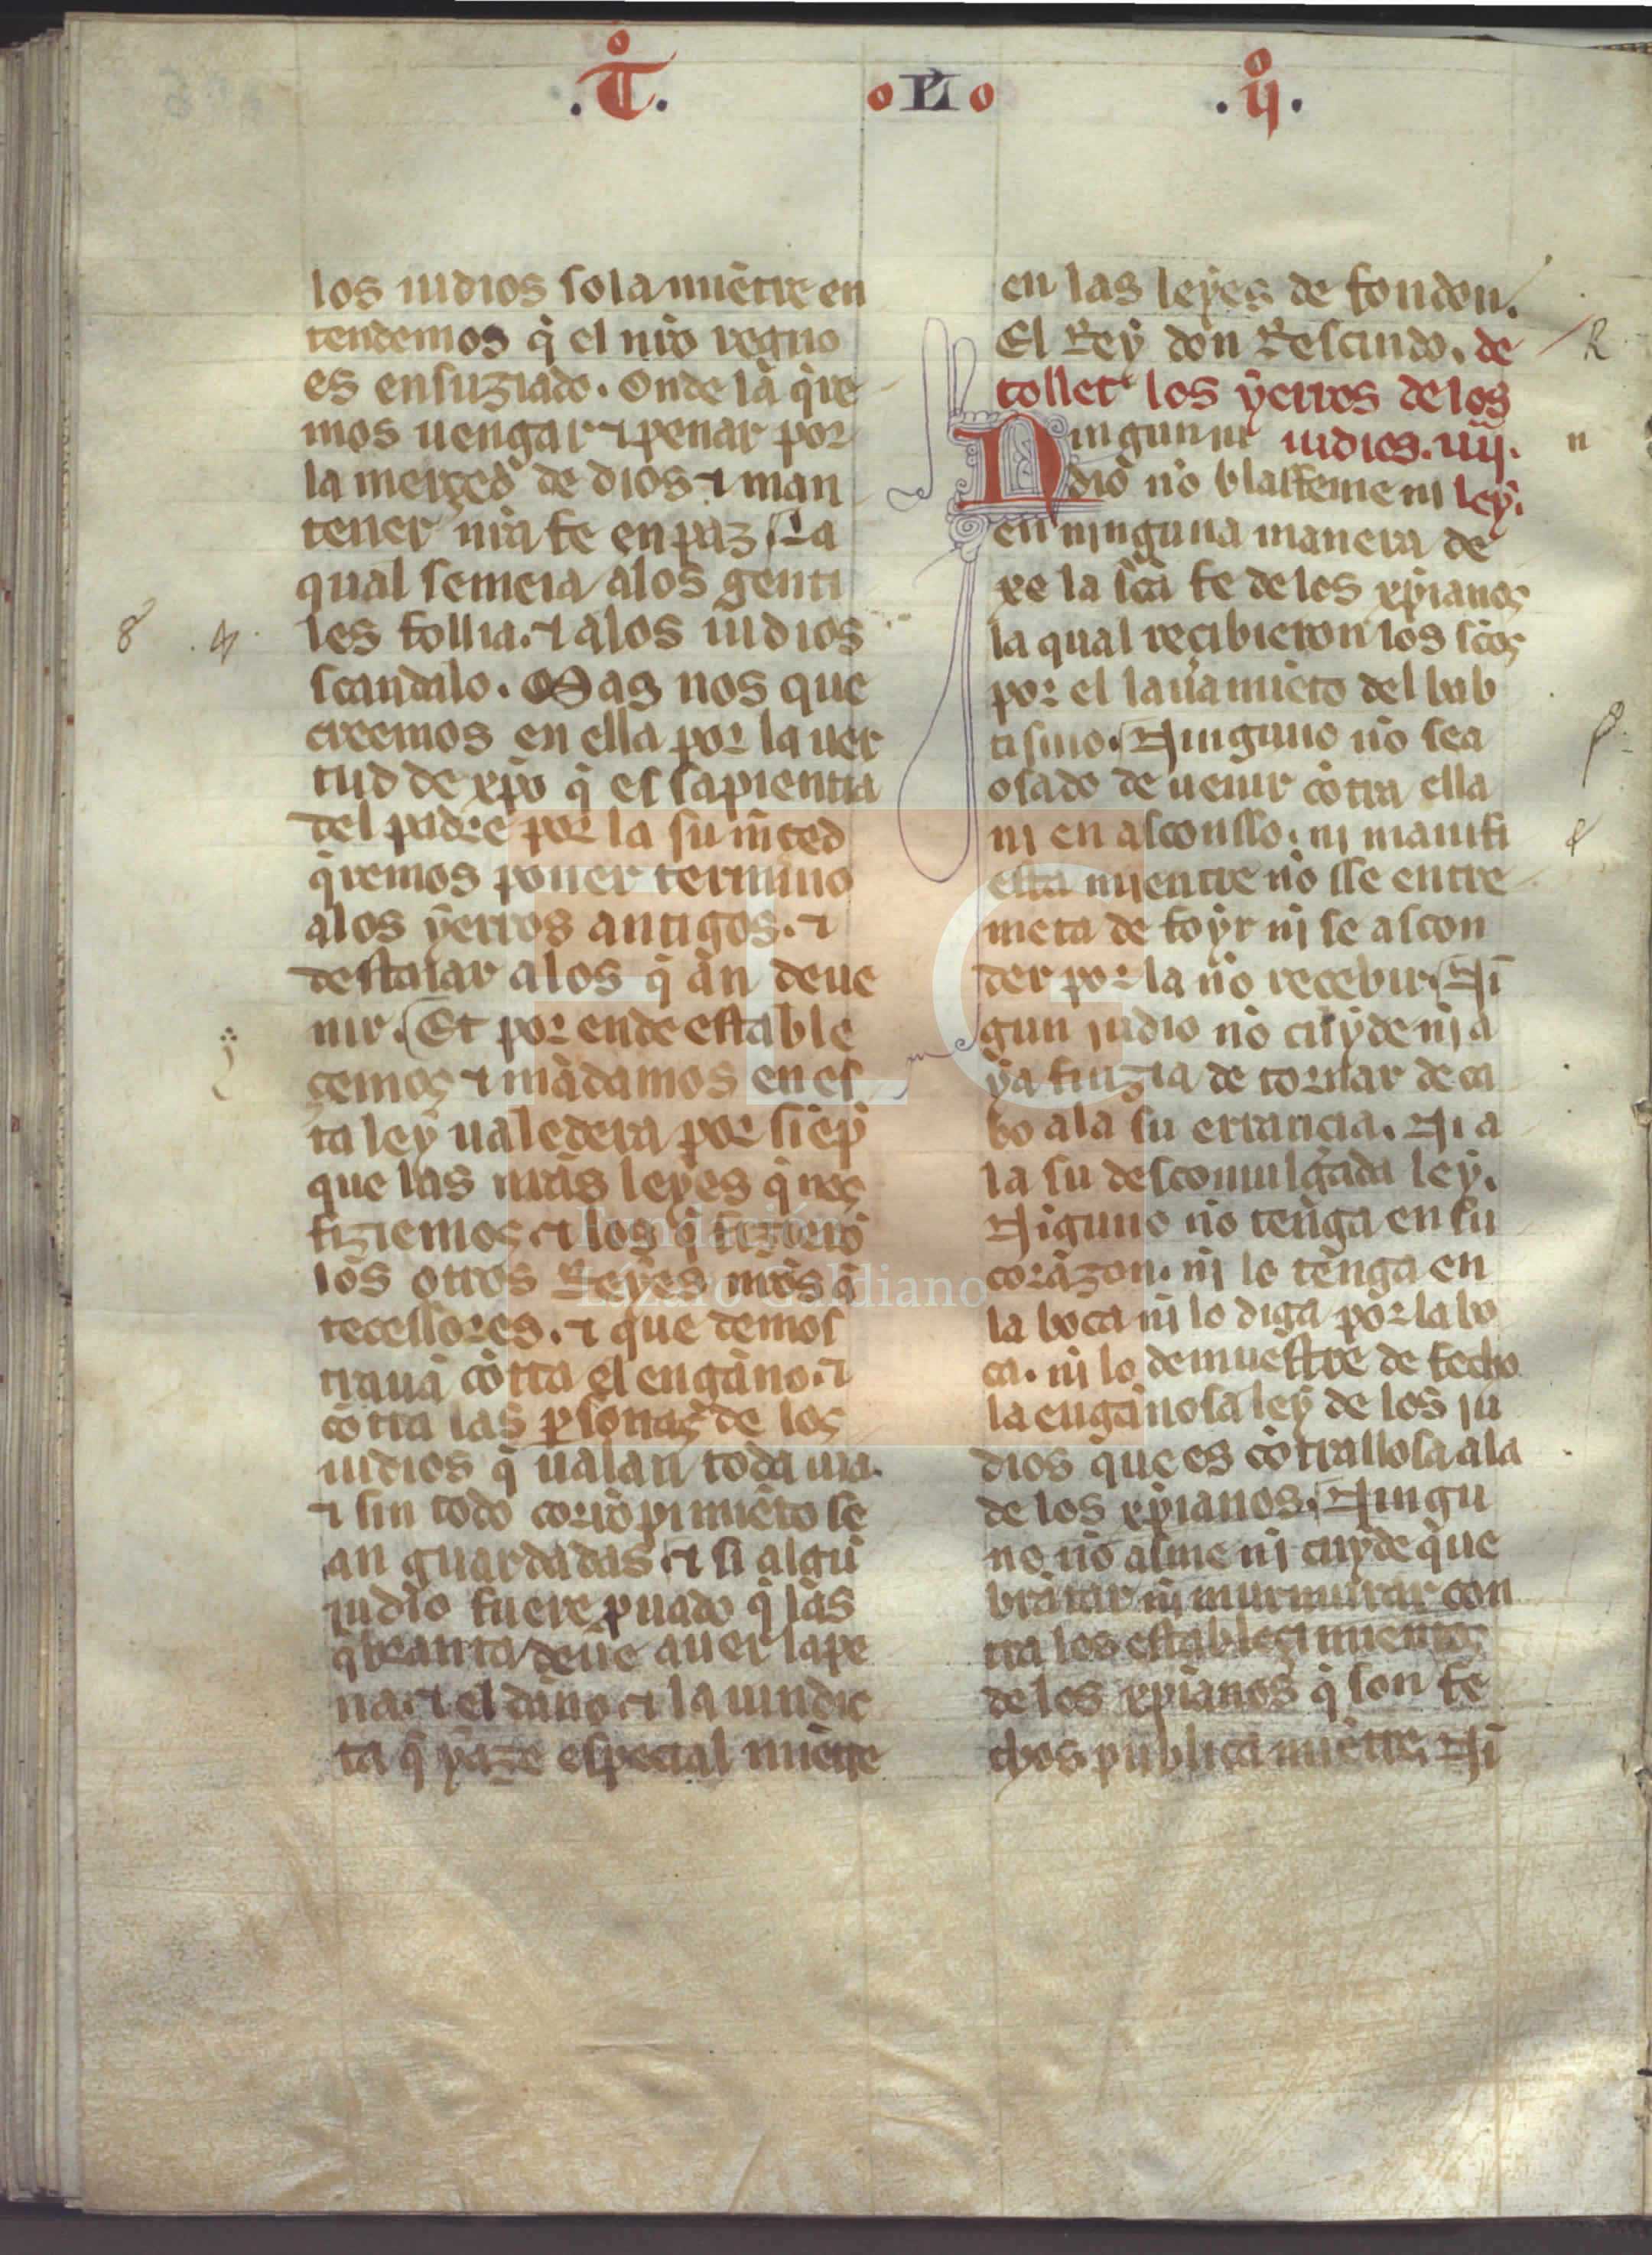 .T͛. o LI o .ij͛.
los iudios sola miẽtre en
tendemos q̃ el nr̃o regno
es ensuziado. Onde la q̃re
mos uengar ⁊ penar por
la merçed de dios ⁊ man
tener nr̃a fe en paz La
qual semeia alos genti
les follia. ⁊ alos iudios
scandalo. Mas nos que
creemos en ella por la uer
tud de xp̃o q̃ es sapientia
del padre por la su mc̃ed
q̃remos poner termino
alos yerros antigos. ⁊
destaiar alos q̃ an deue
nir. Et por ende estable
çemos ⁊ mãdamos en es
ta ley ualedera por siẽp̃
que las nr̃as leyes q̃ nos
fiziemos. ⁊ los q̃ fizierõ
los otros Reyes nr̃os ã
tecessores. ⁊ que demos
trauã cõtra el engano. ⁊
cõtra las ꝑsonas de los
iudios q̃ ualan toda uia.
⁊ sin todo corrõpimiẽto se
an guardadas. ⁊ si algũ
judio fuere ꝓuado q̃ las
q̃branta deue auer la pe
na. ⁊ el dãno. ⁊ la uindic
ta q̃ yaze especial miẽtre
en las leyes de fondon.
El Rey don Rescindo. de
toller los yerros de los
iudios. iiij.
ley.
Ningun iu
dio nõ blasfeme ni
en ninguna manera de
xe la sc̃a fe de los xp̃ianos
la qual reçibieron los sc̃os
por el lauamiẽto del bab
tismo. Ninguno nõ sea
osado de uenir cõtra ella
nj en asconsso. nj manifi
esta mjentre nõ sse entre
meta de foyr nj se ascon
der por la nõ recebir. Nĩ
gun judio nõ cuyde nj a
ya fiuzia de tornar de ca
bo ala su errancia. Ni a
la su descomulgada ley.
Niguno nõ tenga en su
corazon. nj lo tenga en
la boca nj lo diga por la bo
ca. nj lo demuestre de fecho
la enganosa ley de los ju
dios que es cõtrallosa ala
de los xp̃ianos. Ningu
no nõ asme nj cuyde que
brãtar nj murmurar con
tra los establecimientos
de los xp̃ianos q̃ son fe
chos publica miẽtre. Nĩ
R
n
FLG
Fundación
Lázaro Galdiano